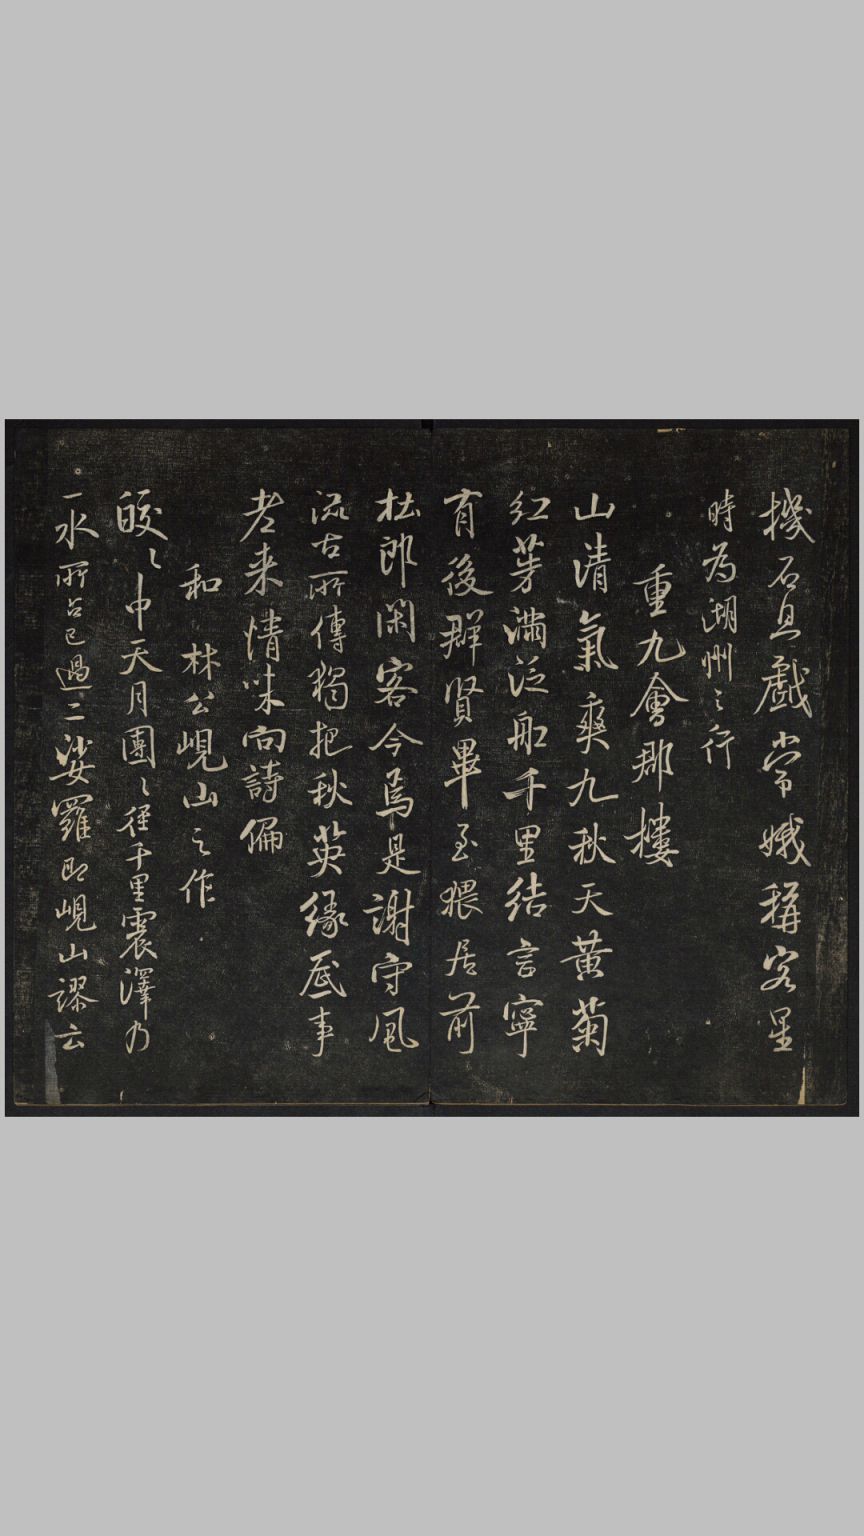 機石忽戲常娥稱客星
時為湖州之行
重九會郡樓
山清氣爽九秋天黃菊
紅茱滿泛船千里結言寧
有後群賢畢至猥居前
杜郎閑客今焉是謝守風
流古所傳獨把秋英緣底事
老來情味向詩偏
和林公峴山之作
皎〻中天月團〻徑千里震澤乃
一水所占已過二娑羅即峴山謬云